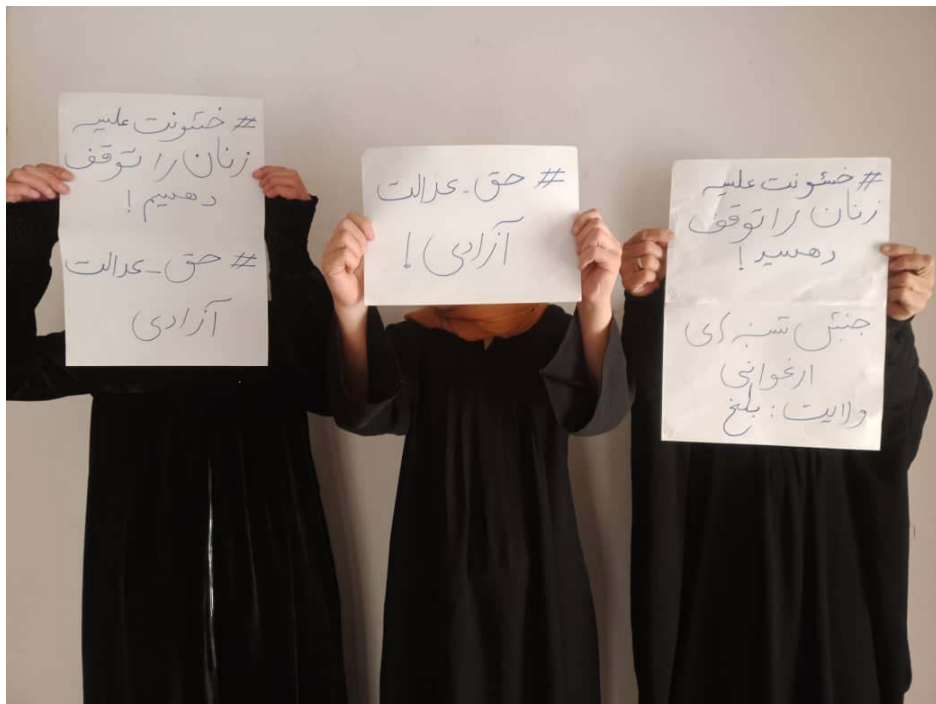 # خشونت علیه
زنان را توقف
دهیم!
# حق-عدالت
آزادی
# حق-عدالت
آزادی!
# خشونت علیه
زنان را توقف
دهید!
جنبش شنبه های
ارغوانی
ولایت: بلخ